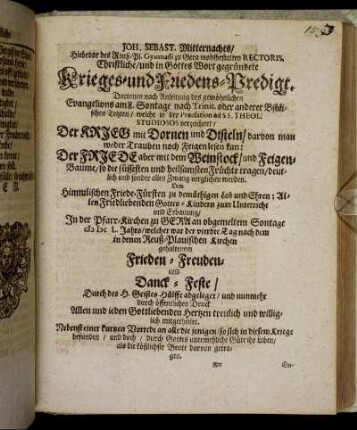 JOH. SEBAST. Mitternachts/
Hiebevor des Reuß-Pl. Gymnasii zu Gera wolverhalten RECTORIS,
Christliche/ und in Gottes Wort gegründete
Krieges- und Friedens-Predigt.
Darinnen nach Anleitung des gewöhnlichen
Evangelions am 8. Sontage nach Trinit. oder anderer Biblischen
Texten/ welche in der Præfation ad SS. THEOL.
STUDIOSOS verzeichnet/
Der KRIEG mit Dornen und Disteln/ darvon man
weder Trauben noch Feigen lesen kan:
Der FRIEDE aber mit dem Weinstock/ und Feigen-
Baume/ so die süssesten und heilsamsten Früchte tragen/ deut-
lich und sonder allen Zwang verglichen werden.
Dem
Himmlischen Friede-Fürsten zu demüthigen Lob und Ehren: Al-
len Friedliebenden Gottes-Kindern zum Unterricht
und Erbauung/
In der Pfarr-Kirchen zu GERA an obgemeltem Sontage
Jahrs/ welcher war der vierdte Tag nach dem
in denen Reuß-Plauischen Kirchen
gehaltenem
Frieden-Freuden-
und
Danck-Feste/
Durch des H. Geistes Hülffe abgeleget/ und nunmehr
durch öffentlichen Druck
Allen und ieden Gottliebenden Hertzen treulich und willig-
lich mitgetheilet.
Nebenst einer kurtzen Vorrede an alle die jenigen/ so sich in diesem Kriege
befunden/ und doch/ durch Gottes unermeßliche Güte ihr Leben/
als die köstlichste Beute darvon getra-
gen.